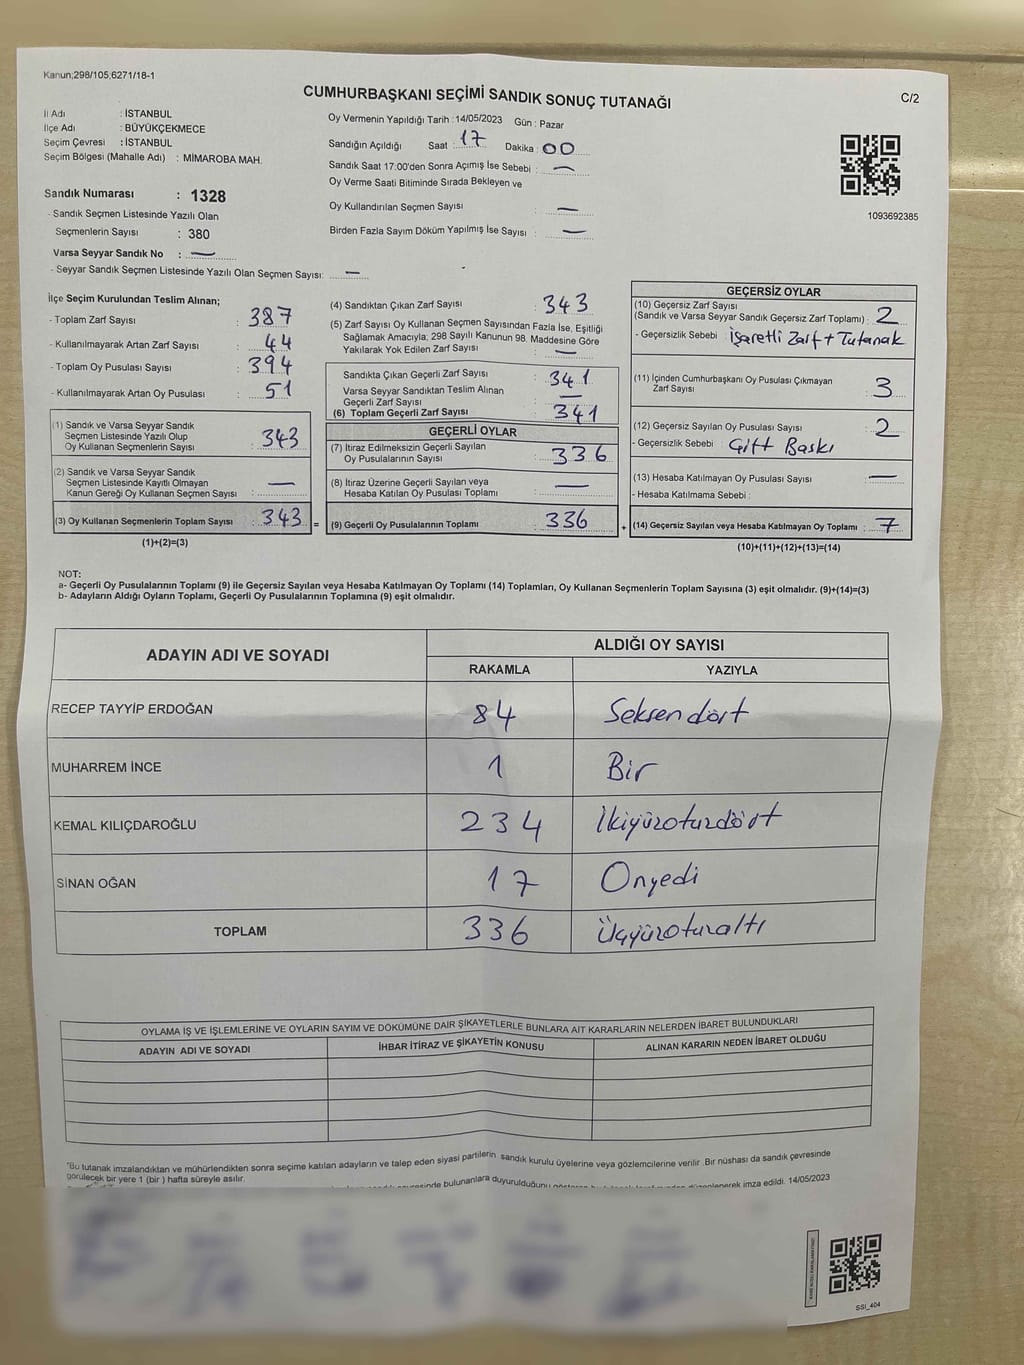 Kanun;298/105,6271/18-1
CUMHURBAŞKANI SEÇİMİ SANDIK SONUÇ TUTANAĞI
C/2
İl Adı : İSTANBUL
İlçe Adı : BÜYÜKÇEKMECE
Seçim Çevresi : İSTANBUL
Seçim Bölgesi (Mahalle Adı) : MİMAROBA MAH.
Sandık Numarası : 1328
- Sandık Seçmen Listesinde Yazılı Olan
Seçmenlerin Sayısı : 380
Varsa Seyyar Sandık No : —
- Seyyar Sandık Seçmen Listesinde Yazılı Olan Seçmen Sayısı: —
Oy Vermenin Yapıldığı Tarih : 14/05/2023 Gün : Pazar
Sandığın Açıldığı Saat : 17 Dakika : 00
Sandık Saat 17:00'den Sonra Açımış İse Sebebi : —
Oy Verme Saati Bitiminde Sırada Bekleyen ve
Oy Kullandırılan Seçmen Sayısı : —
Birden Fazla Sayım Döküm Yapılmış İse Sayısı : —
1093692385
İlçe Seçim Kurulundan Teslim Alınan;
- Toplam Zarf Sayısı : 387
- Kullanılmayarak Artan Zarf Sayısı : 44
- Toplam Oy Pusulası Sayısı : 394
- Kullanılmayarak Artan Oy Pusulası : 51
(1) Sandık ve Varsa Seyyar Sandık
Seçmen Listesinde Yazılı Olup
Oy Kullanan Seçmenlerin Sayısı : 343
(2) Sandık ve Varsa Seyyar Sandık
Seçmen Listesinde Kayıtlı Olmayan
Kanun Gereği Oy Kullanan Seçmen Sayısı : —
(3) Oy Kullanan Seçmenlerin Toplam Sayısı : 343 =
(1)+(2)=(3)
(4) Sandıktan Çıkan Zarf Sayısı : 343
(5) Zarf Sayısı Oy Kullanan Seçmen Sayısından Fazla İse, Eşitliği
Sağlamak Amacıyla; 298 Sayılı Kanunun 98. Maddesine Göre
Yakılarak Yok Edilen Zarf Sayısı : —
Sandıkta Çıkan Geçerli Zarf Sayısı : 341
Varsa Seyyar Sandıktan Teslim Alınan
Geçerli Zarf Sayısı : —
(6) Toplam Geçerli Zarf Sayısı : 341
GEÇERLİ OYLAR
(7) İtiraz Edilmeksizin Geçerli Sayılan
Oy Pusulalarının Sayısı : 336
(8) İtiraz Üzerine Geçerli Sayılan veya
Hesaba Katılan Oy Pusulası Toplamı : —
(9) Geçerli Oy Pusulalarının Toplamı : 336 +
GEÇERSİZ OYLAR
(10) Geçersiz Zarf Sayısı
(Sandık ve Varsa Seyyar Sandık Geçersiz Zarf Toplamı) : 2
- Geçersizlik Sebebi : İşaretli Zarf + Tutanak
(11) İçinden Cumhurbaşkanı Oy Pusulası Çıkmayan
Zarf Sayısı : 3
(12) Geçersiz Sayılan Oy Pusulası Sayısı : 2
- Geçersizlik Sebebi : Çift Baskı
(13) Hesaba Katılmayan Oy Pusulası Sayısı : —
- Hesaba Katılmama Sebebi :
(14) Geçersiz Sayılan veya Hesaba Katılmayan Oy Toplamı : 7
(10)+(11)+(12)+(13)=(14)
NOT:
a- Geçerli Oy Pusulalarının Toplamı (9) ile Geçersiz Sayılan veya Hesaba Katılmayan Oy Toplamı (14) Toplamları, Oy Kullanan Seçmenlerin Toplam Sayısına (3) eşit olmalıdır. (9)+(14)=(3)
b- Adayların Aldığı Oyların Toplamı, Geçerli Oy Pusulalarının Toplamına (9) eşit olmalıdır.
ADAYIN ADI VE SOYADI ALDIĞI OY SAYISI
RAKAMLA YAZIYLA
RECEP TAYYİP ERDOĞAN 84 Seksendört
MUHARREM İNCE 1 Bir
KEMAL KILIÇDAROĞLU 234 İkiyüzotuzdört
SİNAN OĞAN 17 Onyedi
TOPLAM 336 Üçyüzotuzaltı
OYLAMA İŞ VE İŞLEMLERİNE VE OYLARIN SAYIM VE DÖKÜMÜNE DAİR ŞİKAYETLERLE BUNLARA AİT KARARLARIN NELERDEN İBARET BULUNDUKLARI
ADAYIN ADI VE SOYADI İHBAR İTİRAZ VE ŞİKAYETİN KONUSU ALINAN KARARIN NEDEN İBARET OLDUĞU
"Bu tutanak imzalandıktan ve mühürlendikten sonra seçime katılan adayların ve talep eden siyasi partilerin sandık kurulu üyelerine veya gözlemcilerine verilir .Bir nüshası da sandık çevresinde
görülecek bir yere 1 (bir ) hafta süreyle asılır.
bulunanlara duyurulduğunu imza edildi. 14/05/2023
SSİ_404